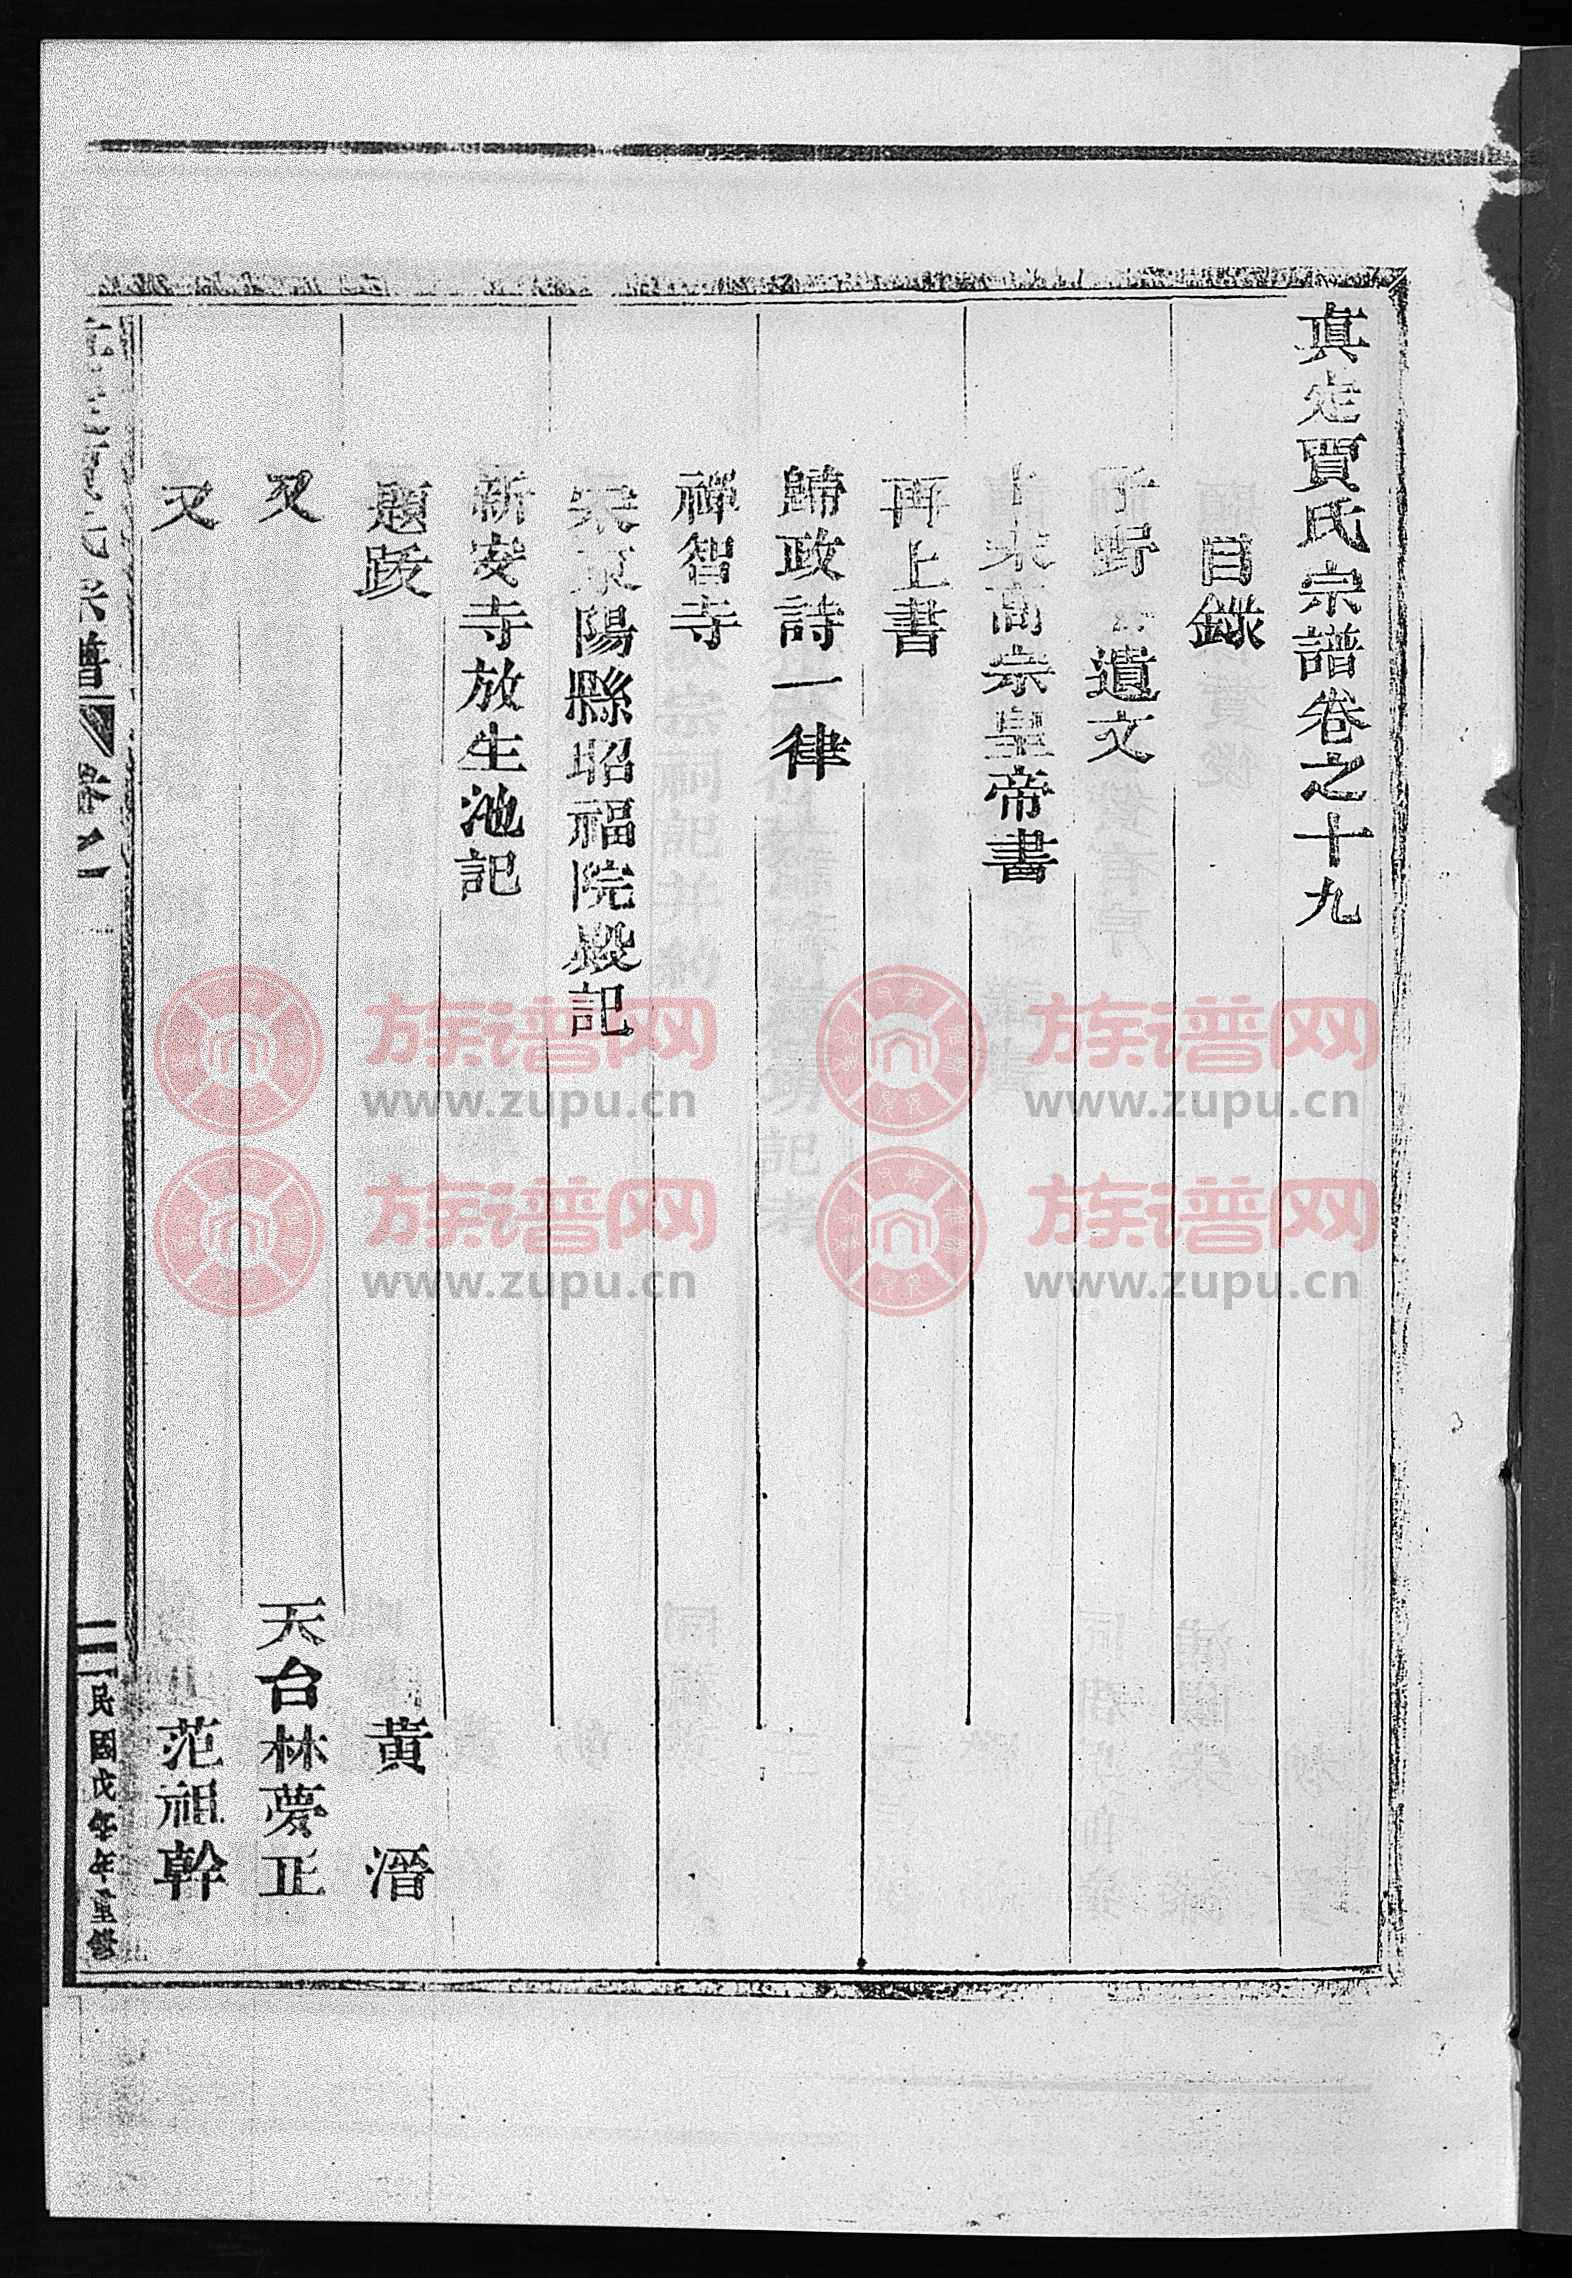 真定賈氏宗譜卷之十九
目錄
子野公遺文
上宋高宗皇帝書
再上書
歸政詩一律
禪智寺
宋東陽縣昭福院殿記
新安寺放生池記
題跋 黃溍
又 天台林夢正
又 范祖幹
宗譜 卷
民國戊午年重修
族谱网
www.zupu.cn
族谱网
www.zupu.cn
族谱网
www.zupu.cn
族谱网
www.zupu.cn